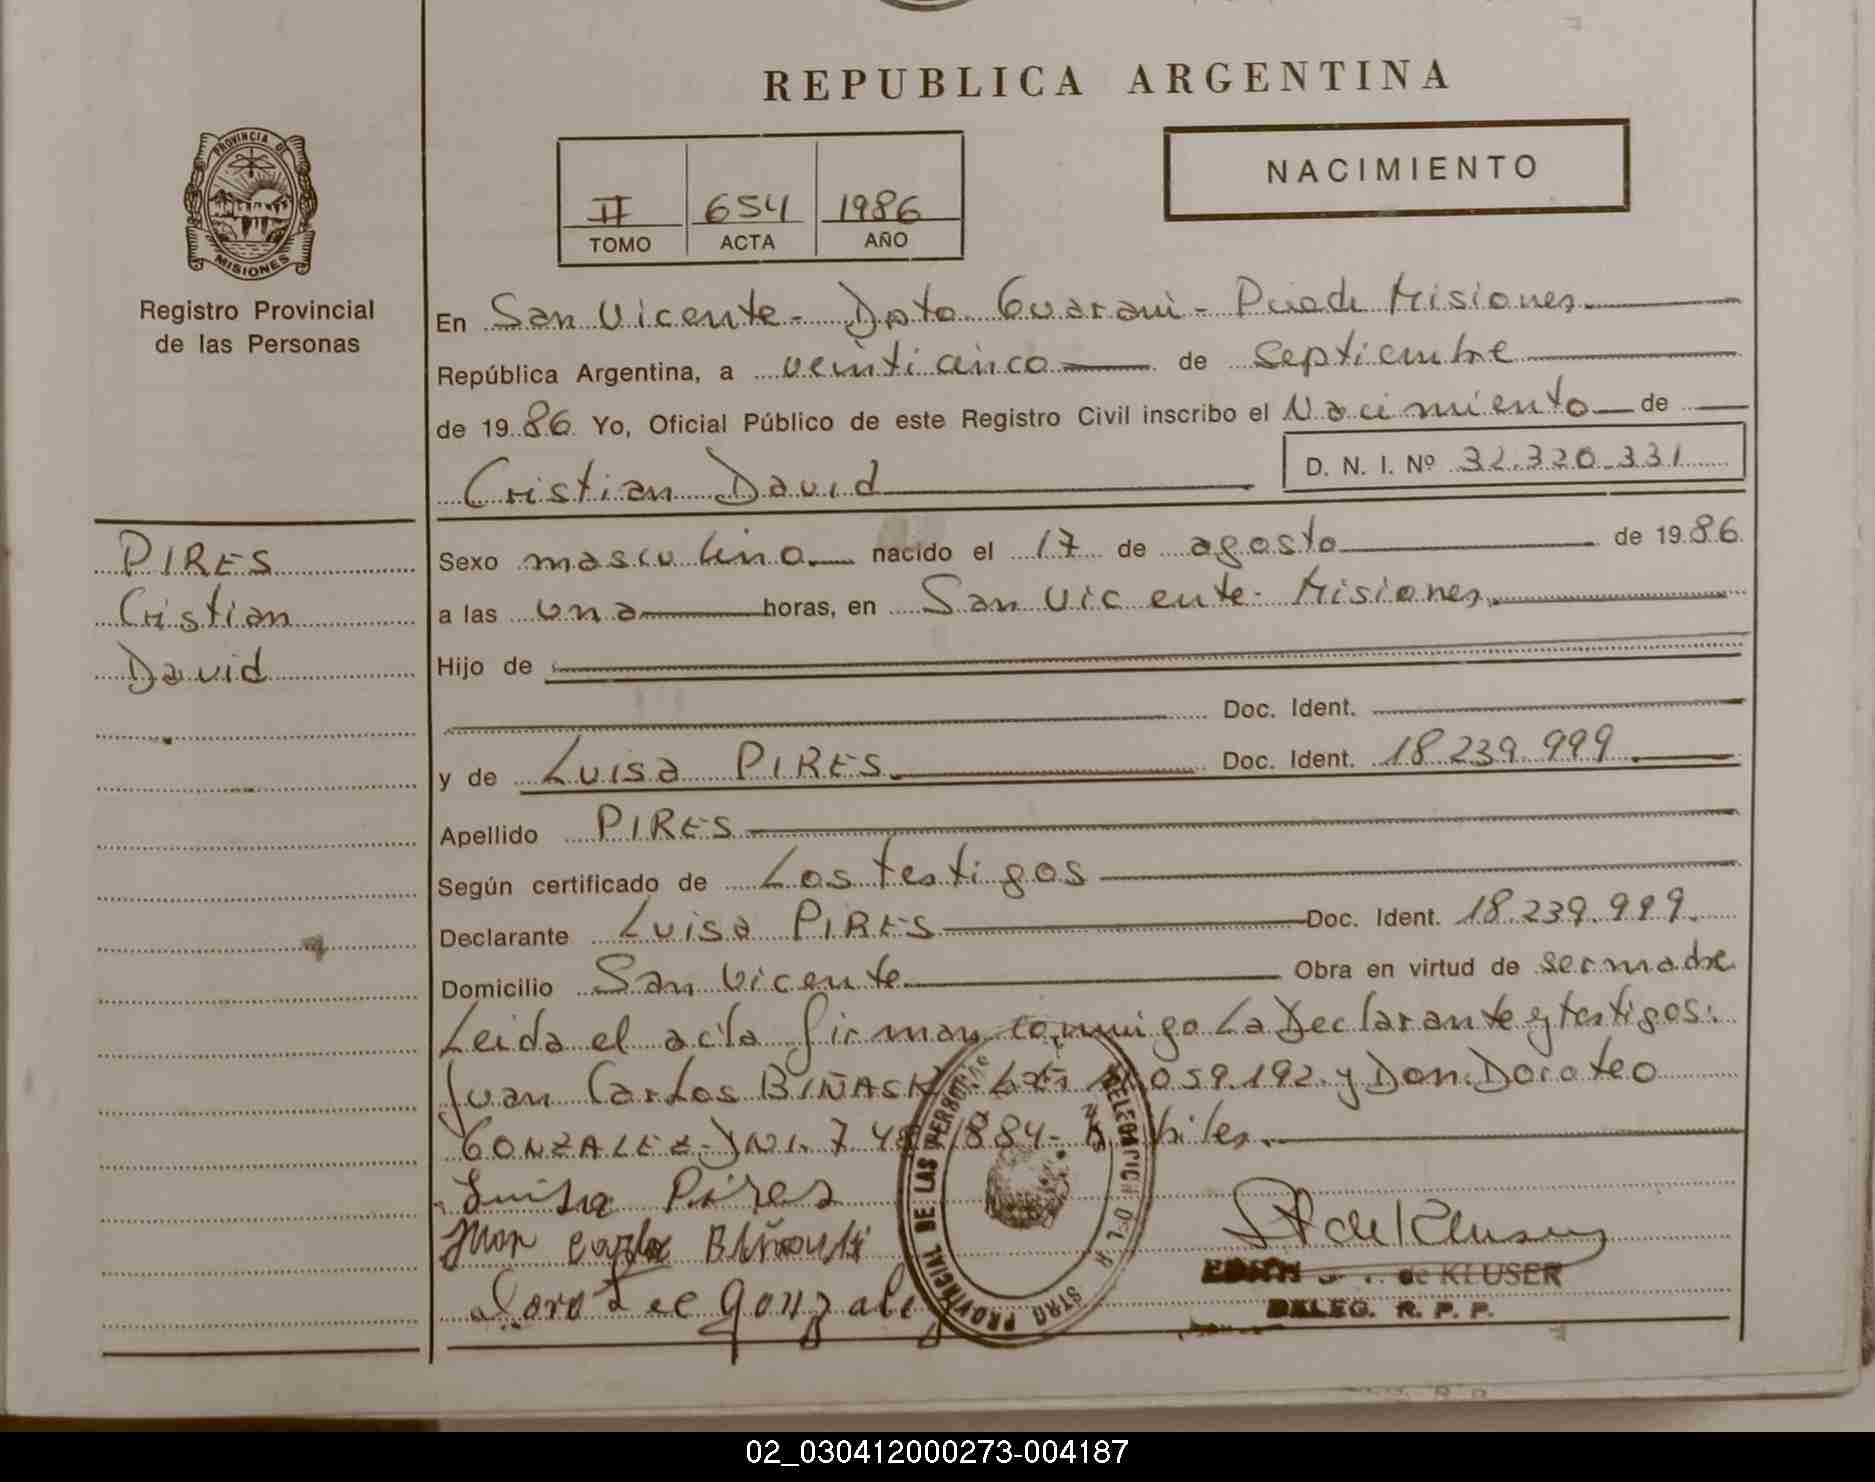 REPUBLICA ARGENTINA
PROVINCIA DE
MISIONES
Registro Provincial
de las Personas
NACIMIENTO
II 654 1986
TOMO ACTA AÑO
En San Vicente - Dpto Guarani - Pcia de Misiones
República Argentina, a veinticinco de septiembre
de 1986 Yo, Oficial Público de este Registro Civil inscribo el Nacimiento de
D. N. I. Nº 32.320.331
Cristian David
PIRES
Cristian
David
Sexo masculino nacido el 17 de agosto de 1986.
a las una horas, en San Vicente - Misiones
Hijo de
Doc. Ident.
y de Luisa PIRES Doc. Ident. 18.239.999
Apellido PIRES
Según certificado de Los testigos
Declarante Luisa PIRES Doc. Ident. 18.239.999.
Domicilio San Vicente Obra en virtud de ser madre
Leida el acta firman conmigo La Declarante y testigos:
Juan Carlos 059.192. y Don Doroteo
GONZALEZ - DNI. 7. 884 - Hábiles.
Luisa Pires
Juan Carlos
Gonzalez
de KLUSER
DELEG. R. P. P.
PROVINCIAL DE LAS PERSONAS
02_030412000273-004187